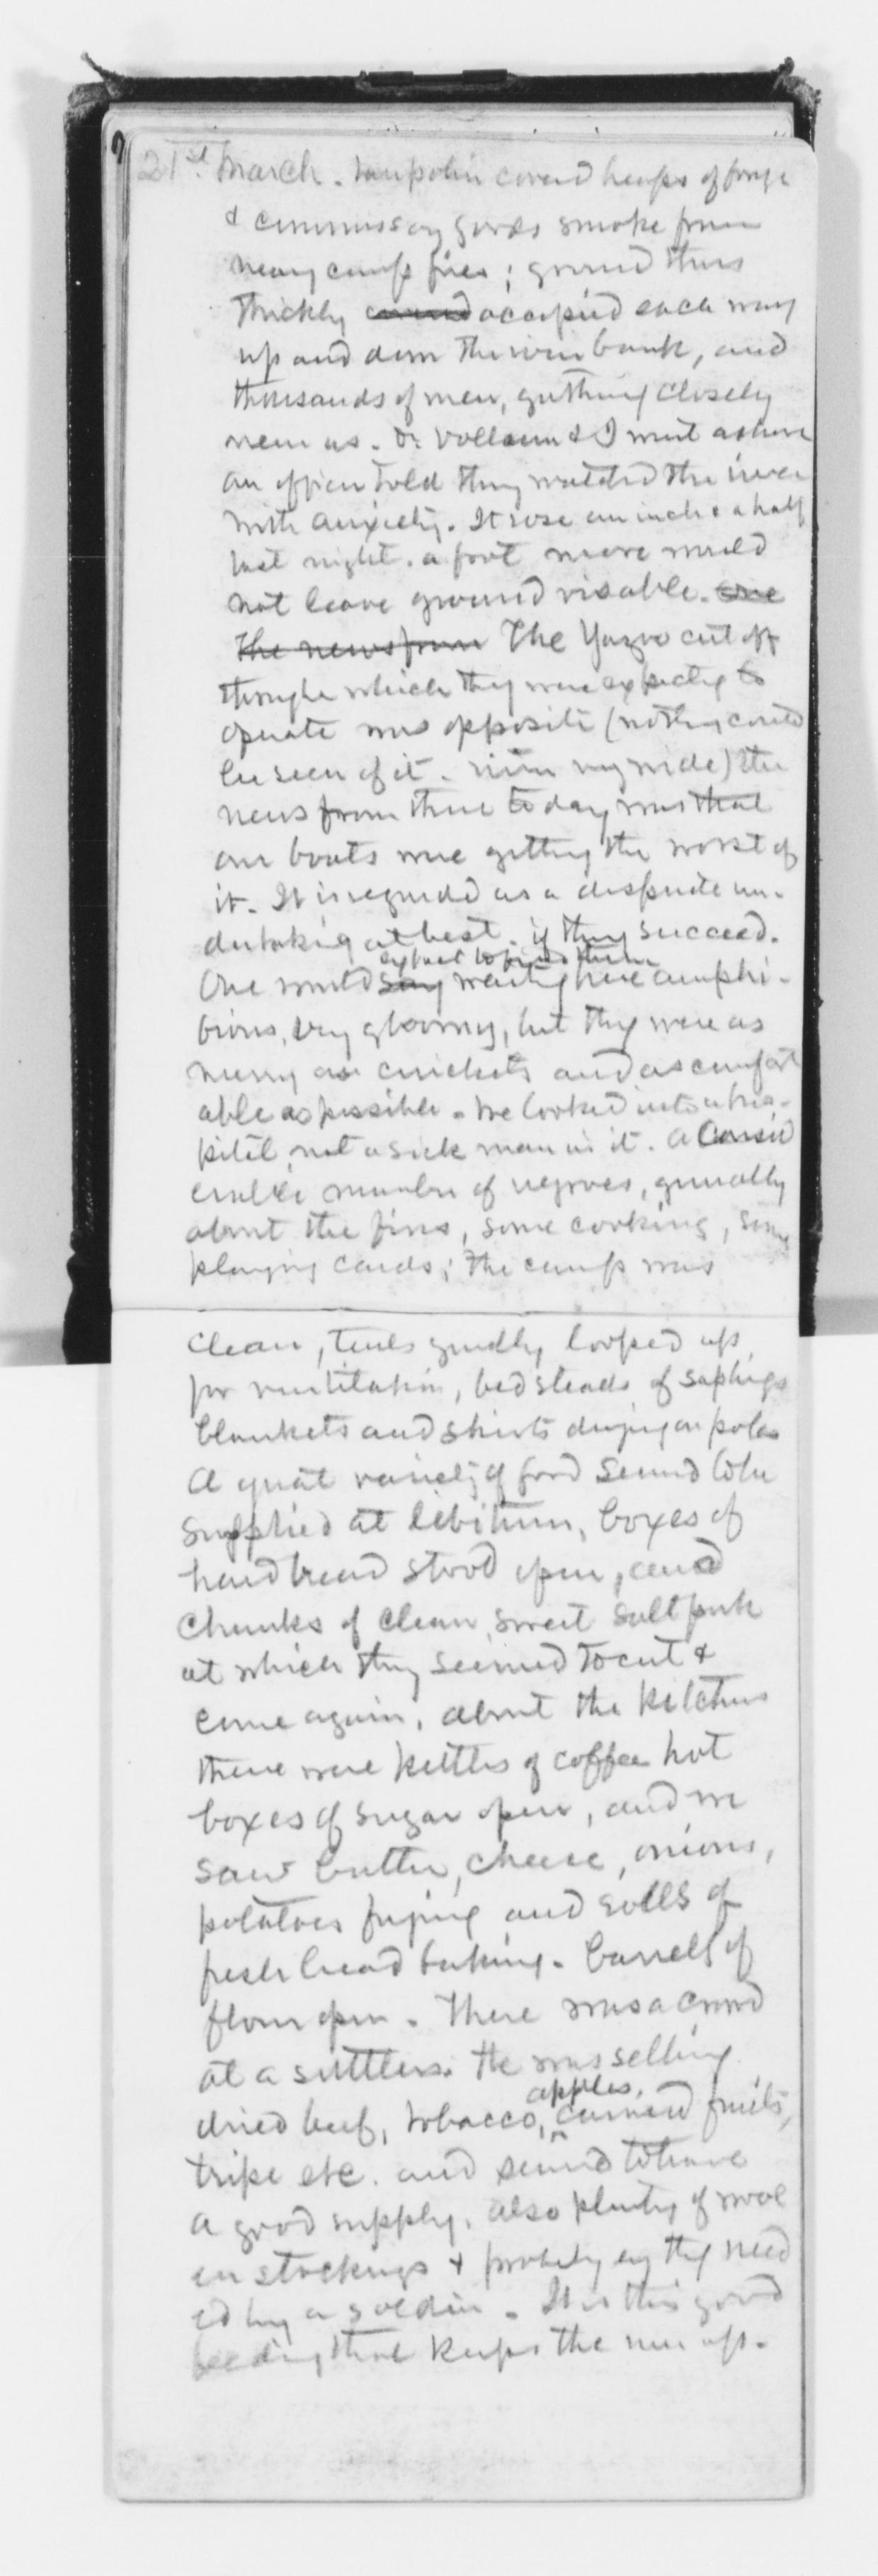 21st. March. Tarpolin covered heaps of forage
& commissary goods smoke from
many camp fires; ground thus
thickly covered occupied each way
up and down the river bank, and
thousands of men, gathering closely
near us. Dr. Vollum & I went ashore
an officer told they watched the river
with anxiety. It rose an inch & a half
last night. a foot more would
not leave ground visable. One
The news from The Yazoo cut off
through which they were expecting to
operate was opposite (nothing could
be seen of it. nim my side) the
news from there today was that
our boats were getting the worst of
it. It is regarded as a desperate un-
dertaking at best, if they succeed.
expect to find them
One would say waiting here amphi-
bious, very gloomy, but they were as
merry as crickets and as comfort
able as possible. We looked into a hos-
pital, not a sick man in it. A consid
erable number of negroes, generally
about the fires, some cooking, some
playing cards; the camp was
clean, tents generally looped up
for ventilation, bedsteads of saplings
blankets and shirts drying on poles
A great variety of food seemed to be
supplied at libitum, boxes of
hard bread stood open, and
chunks of clean, sweet salt pork
at which they seemed to cut &
come again, about the kitchens
there were kettles of coffee hot
boxes of sugar open, and we
saw butter, cheese, onions,
potatoes frying and rolls of
fresh bread baking. barrels of
flour open. There was a crowd
at a suttlers. He was selling
apples,
dried beef, tobacco, canned fruits,
tripe etc. and seemed to have
a good supply, also plenty of wool
en stockings & probably any thg need
ed by a soldier. It is this good
feeding that keeps the men up.